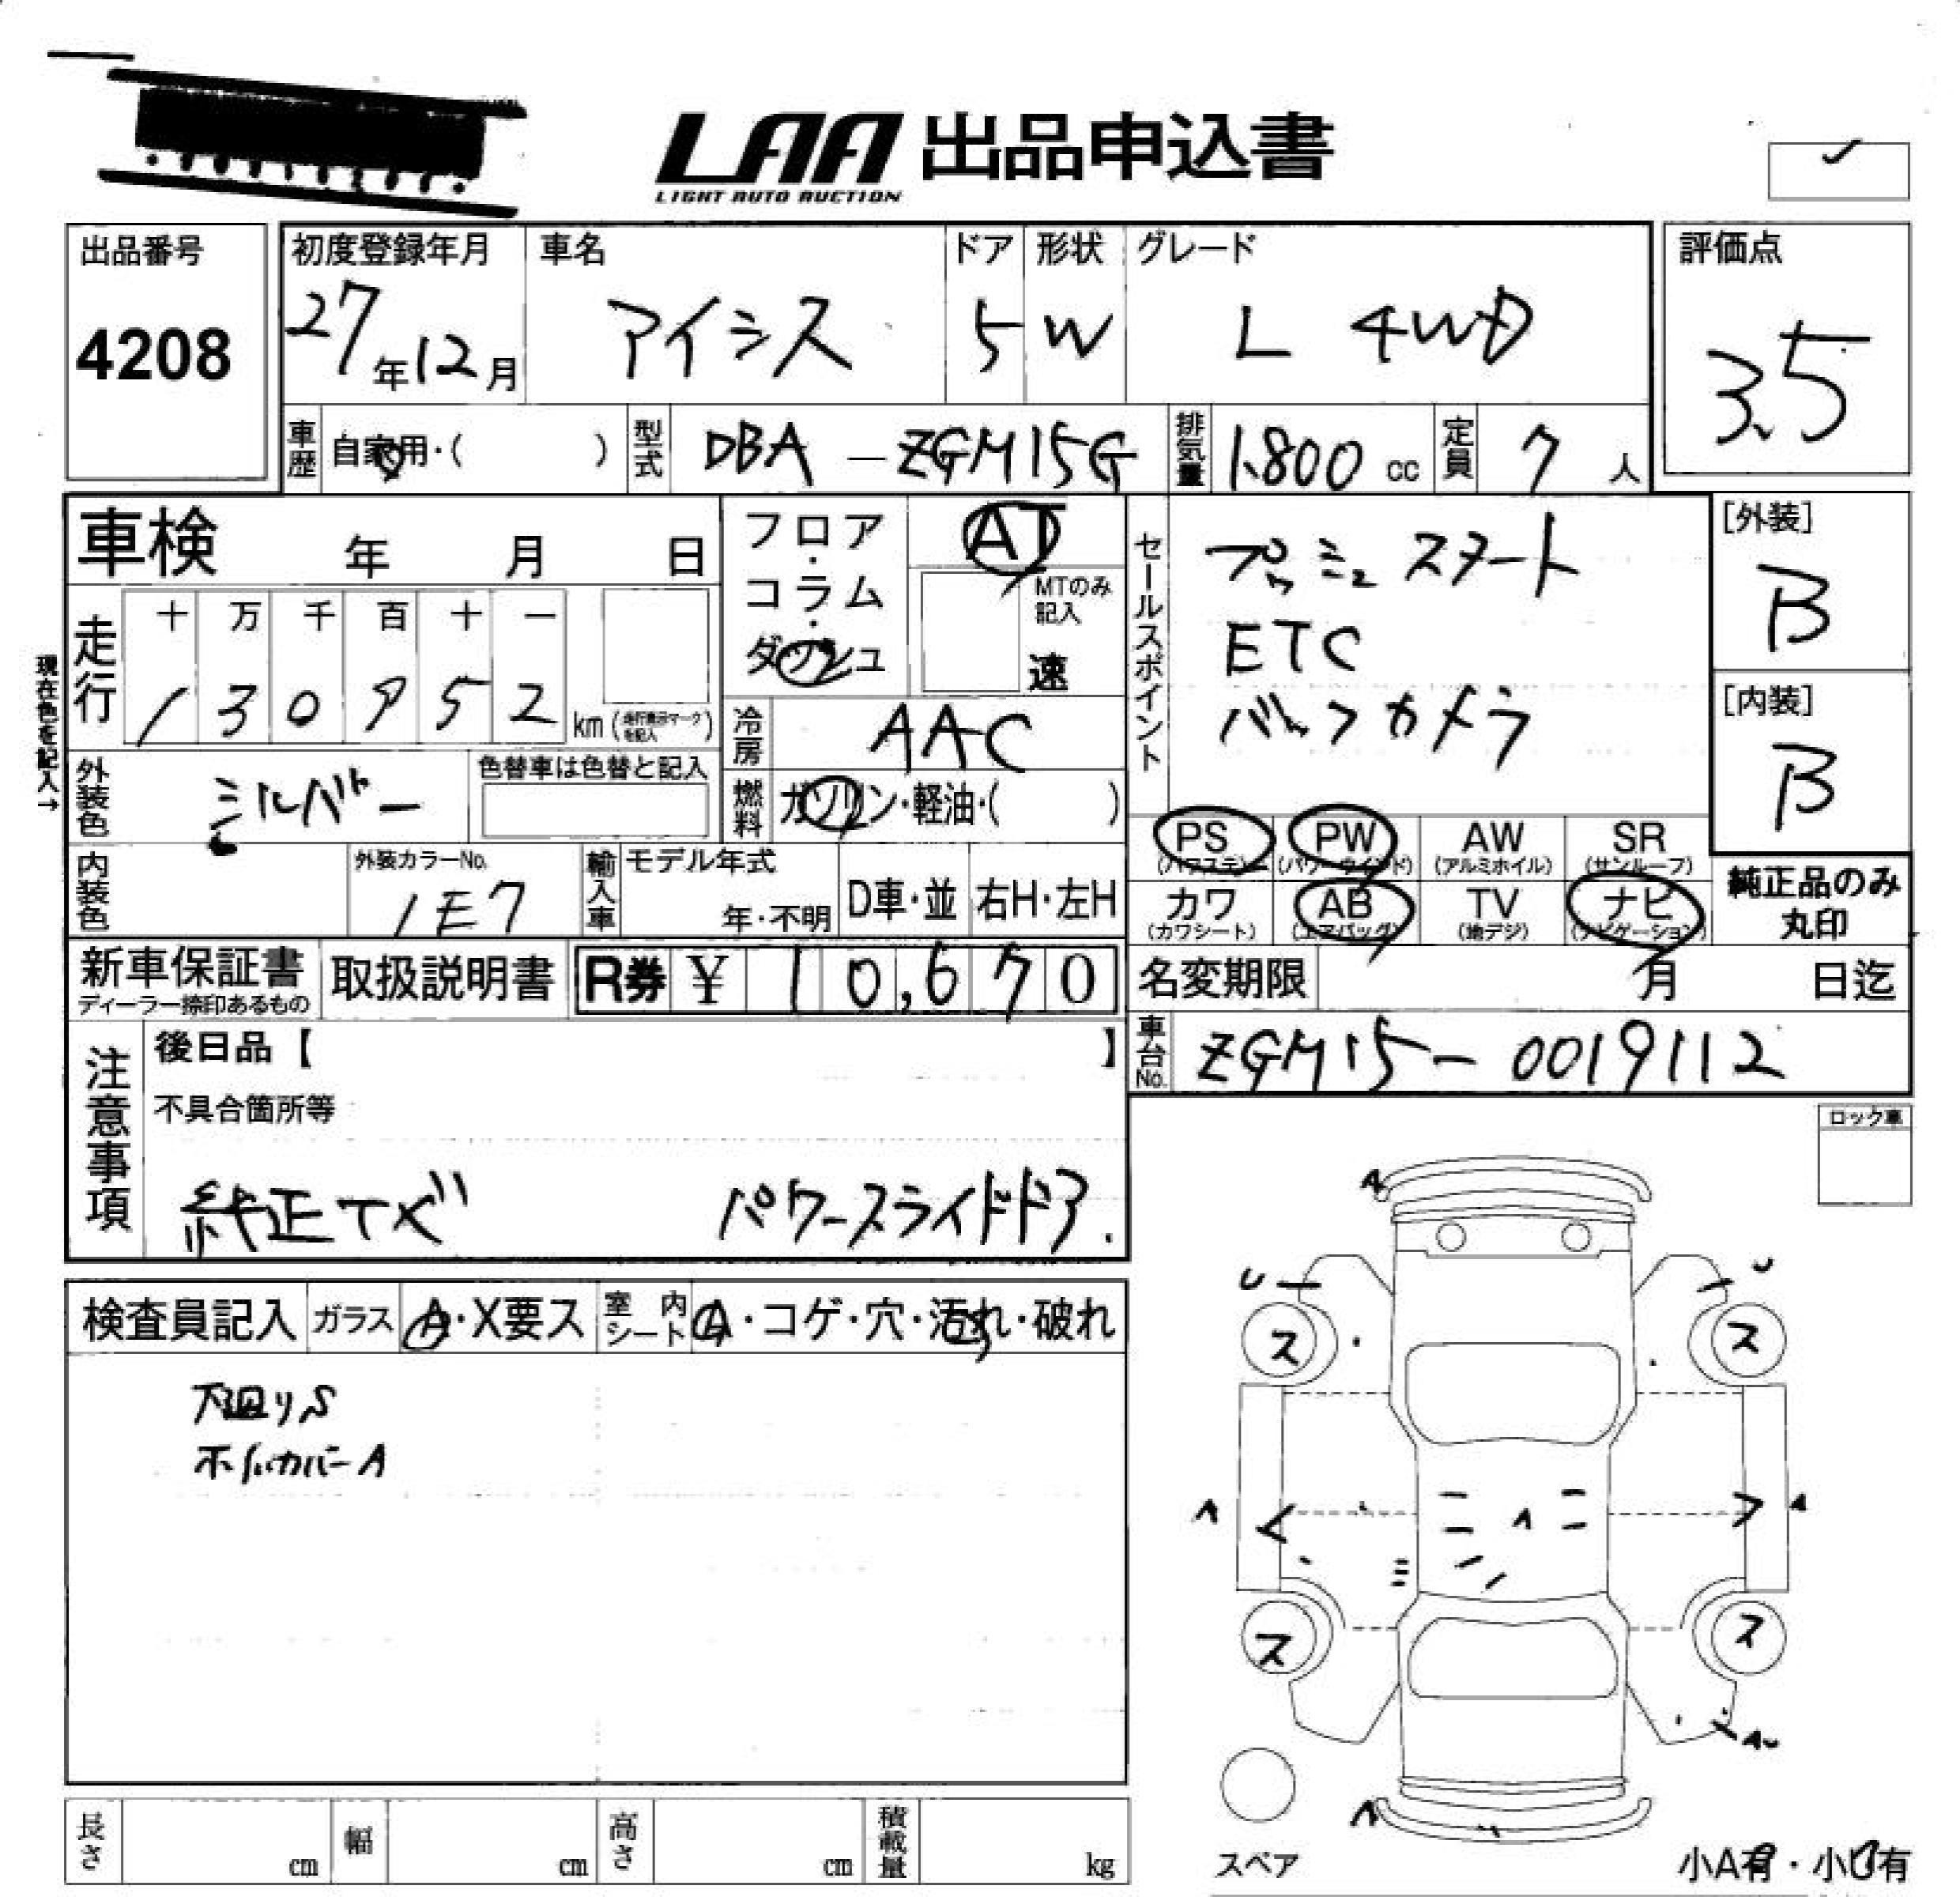 LAA 出品申込書
LIGHT AUTO AUCTION
出品番号
4208
初度登録年月
27年12月
車名
アイシス
ドア
5
形状
W
グレード
L 4WD
評価点
3.5
車歴
自家用・( )
型式
DBA-ZGM15G
排気量
1.800 cc
定員
7人
車検 年 月 日
フロア・コラム・ダッシュ
AT
MTのみ記入
速
セールスポイント
プッシュスタート
ETC
バックカメラ
[外装]
B
[内装]
B
現在色を記入→
走行
十 万 千 百 十 一
1 3 0 9 5 2 km (走行表示マークを記入)
冷房
AAC
外装色
シルバー
色替車は色替と記入
燃料
ガソリン・軽油・( )
PS PW AW SR
(パワステ) (パワーウインド) (アルミホイル) (サンルーフ)
内装色
外装カラーNo.
1E7
輸入車
モデル年式
年・不明
D車・並
右H・左H
カワ AB TV ナビ
(カワシート) (エアバッグ) (地デジ) (ナビゲーション)
純正品のみ
丸印
新車保証書
ディーラー捺印あるもの
取扱説明書
R券 ¥ 10,670
名変期限 月 日迄
注意事項
後日品【 】
車台No.
ZGM15-0019112
不具合箇所等
純正ナビ パワースライドドア.
ロック車
検査員記入
ガラス A・X要ス
室内シート A・コゲ・穴・汚れ・破れ
下廻りS
ホイルカバーA
A
U U
ス ス
A A A
ス ス
AU
A
スペア
小A有・小U有
長さ cm 幅 cm 高さ cm 積載量 kg